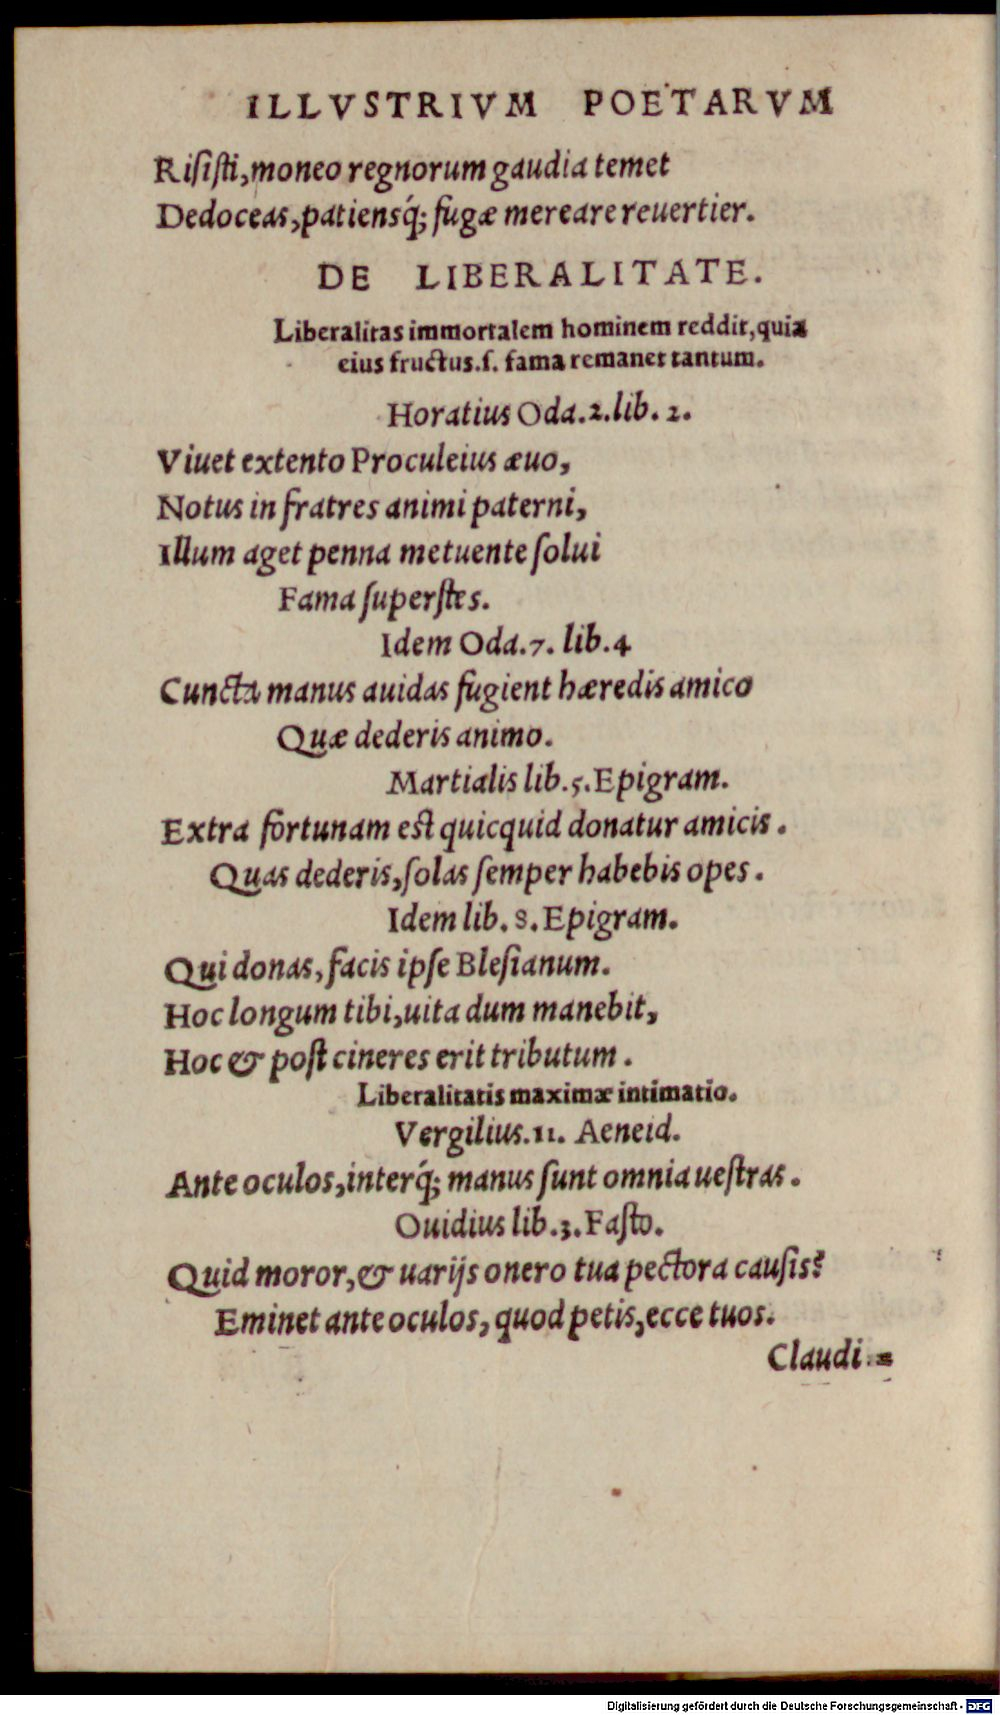 ILLVSTRIVM POETARVM
Risisti, moneo regnorum gaudia temet
Dedoceas, patiensq́; fugæ mereare reuertier.
DE LIBERALITATE.
Liberalitas immortalem hominem reddit, quia
eius fructus.s. fama remanet tantum.
Horatius Oda.2.lib.2.
Viuet extento Proculeius æuo,
Notus in fratres animi paterni,
Illum aget penna metuente solui
Fama superstes.
Idem Oda.7. lib.4
Cuncta manus auidas fugient hæredis amico
Quæ dederis animo.
Martialis lib.5.Epigram.
Extra fortunam est quicquid donatur amicis.
Quas dederis, solas semper habebis opes.
Idem lib.8.Epigram.
Qui donas, facis ipse Blesianum.
Hoc longum tibi, uita dum manebit,
Hoc & post cineres erit tributum.
Liberalitatis maximæ intimatio.
Vergilius.11. Aeneid.
Ante oculos, interq́; manus sunt omnia uestras.
Ouidius lib.3.Fasto.
Quid moror, & uarijs onero tua pectora causis?
Eminet ante oculos, quod petis, ecce tuos.
Claudi=
Digitalisierung gefördert durch die Deutsche Forschungsgemeinschaft - DFG